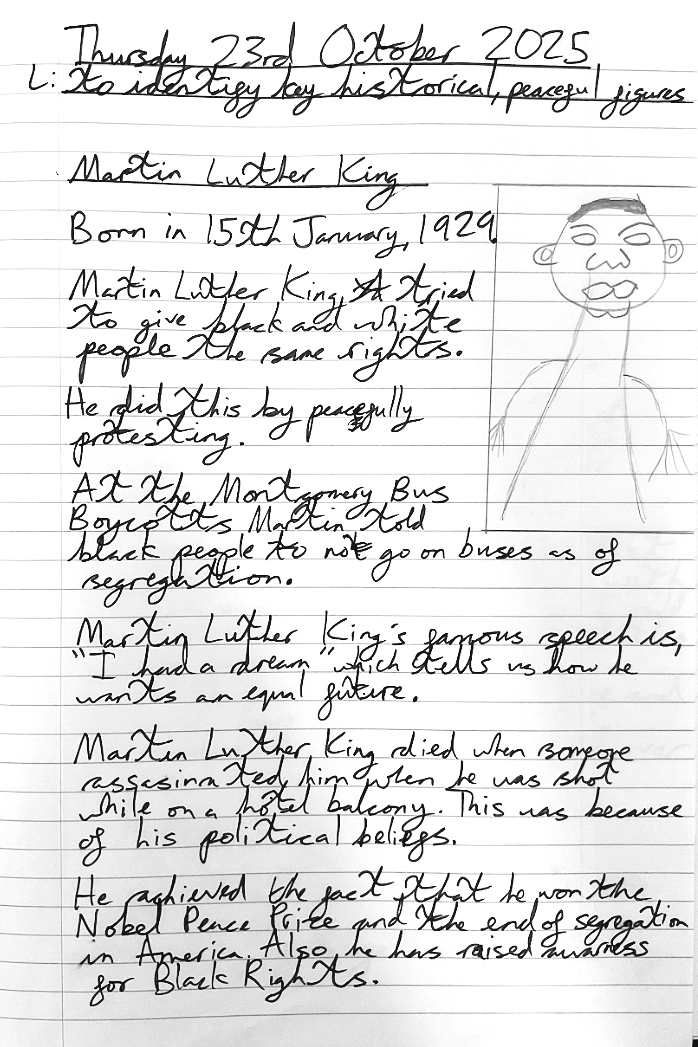 Thursday 23rd October 2025
L: to identify key historical, peaceful figures
Martin Luther King
Born in 15th January, 1929
Martin Luther King, tried
to give black and white
people the same rights.
He did this by peacefully
protesting.
At the Montgomery Bus
Boycotts Martin told
black people to not go on buses as of
segregation.
Martin Luther King's famous speech is,
"I had a dream" which tells us how he
wants an equal future.
Martin Luther King died when someone
assasinated him when he was shot
while on a hotel balcony. This was because
of his political beliefs.
He achieved the fact that he won the
Nobel Peace Prize and the end of segregation
in America. Also he has raised awarness
for Black Rights.